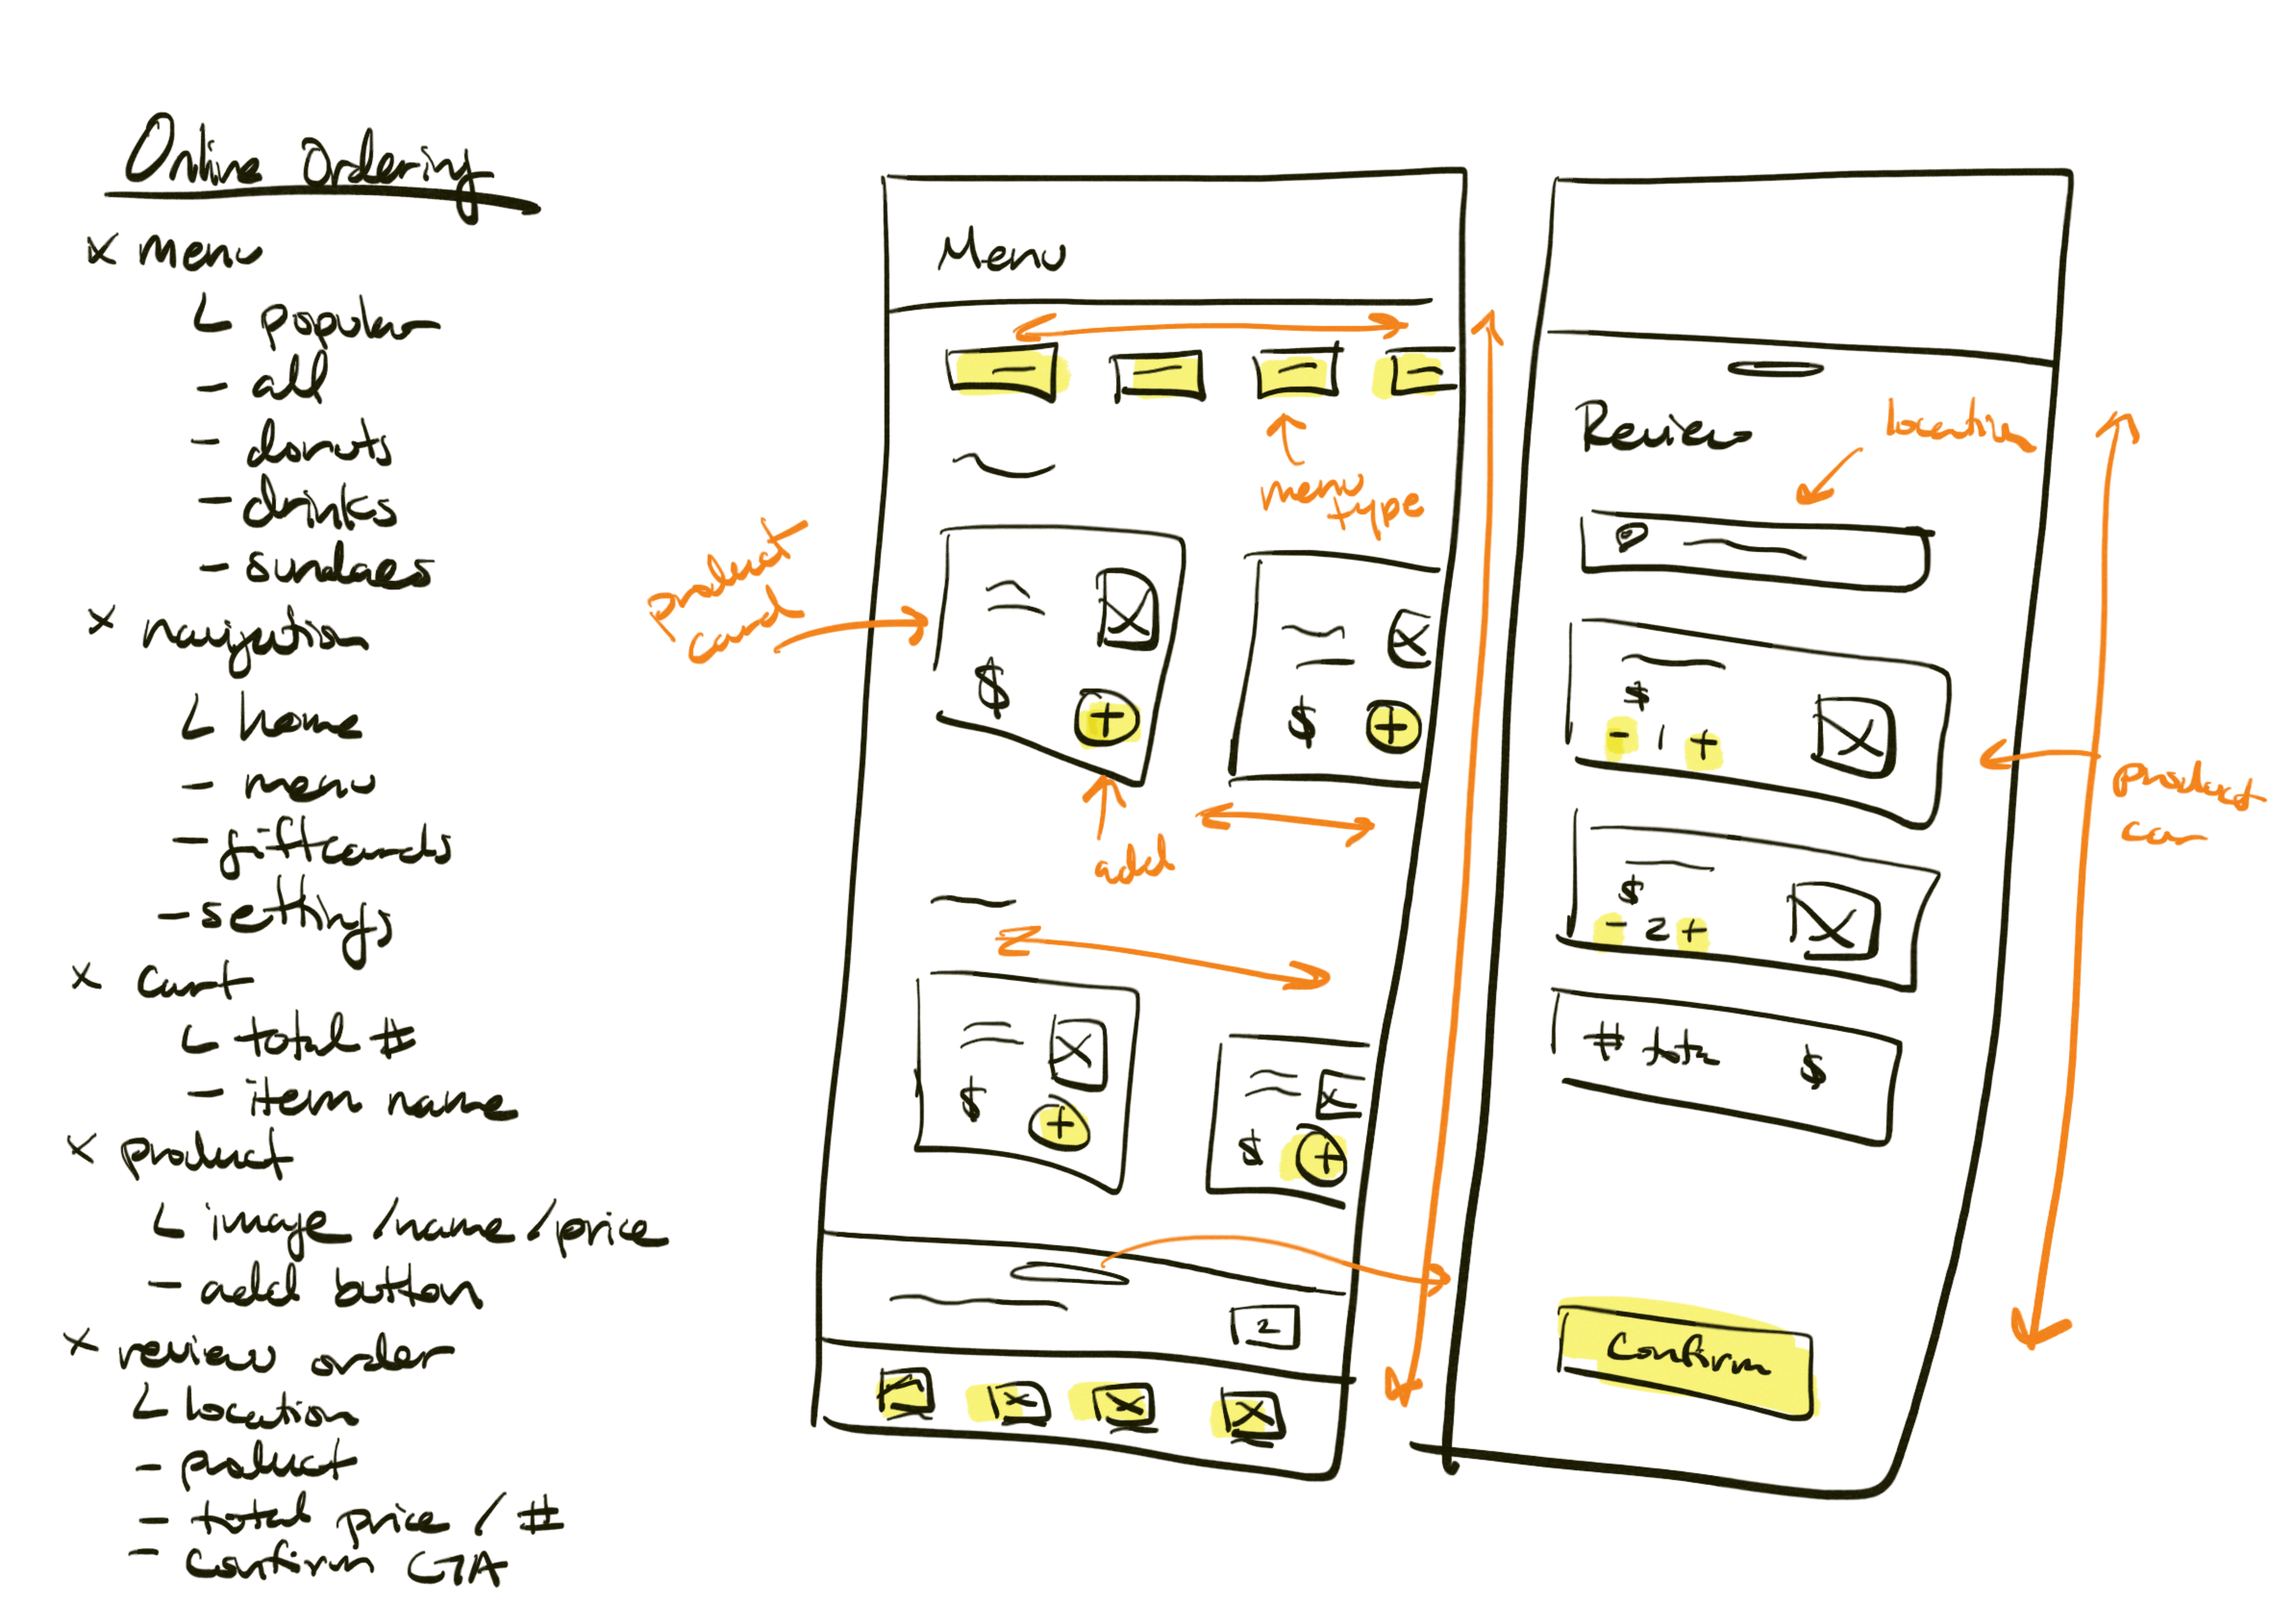 Online Ordering
x menu
└ popular
- all
- donuts
- drinks
- sundaes
x navigation
└ home
- menu
- giftcards
- settings
x cart
└ total #
- item name
x product
└ image / name / price
- add button
x review order
└ location
- product
- total price / #
- confirm CTA
Menu
menu
type
product
card
$
+
$
+
add
$
+
$
+
2
Review
location
$
- 1 +
product
car
$
- 2 +
# tota $
Confirm